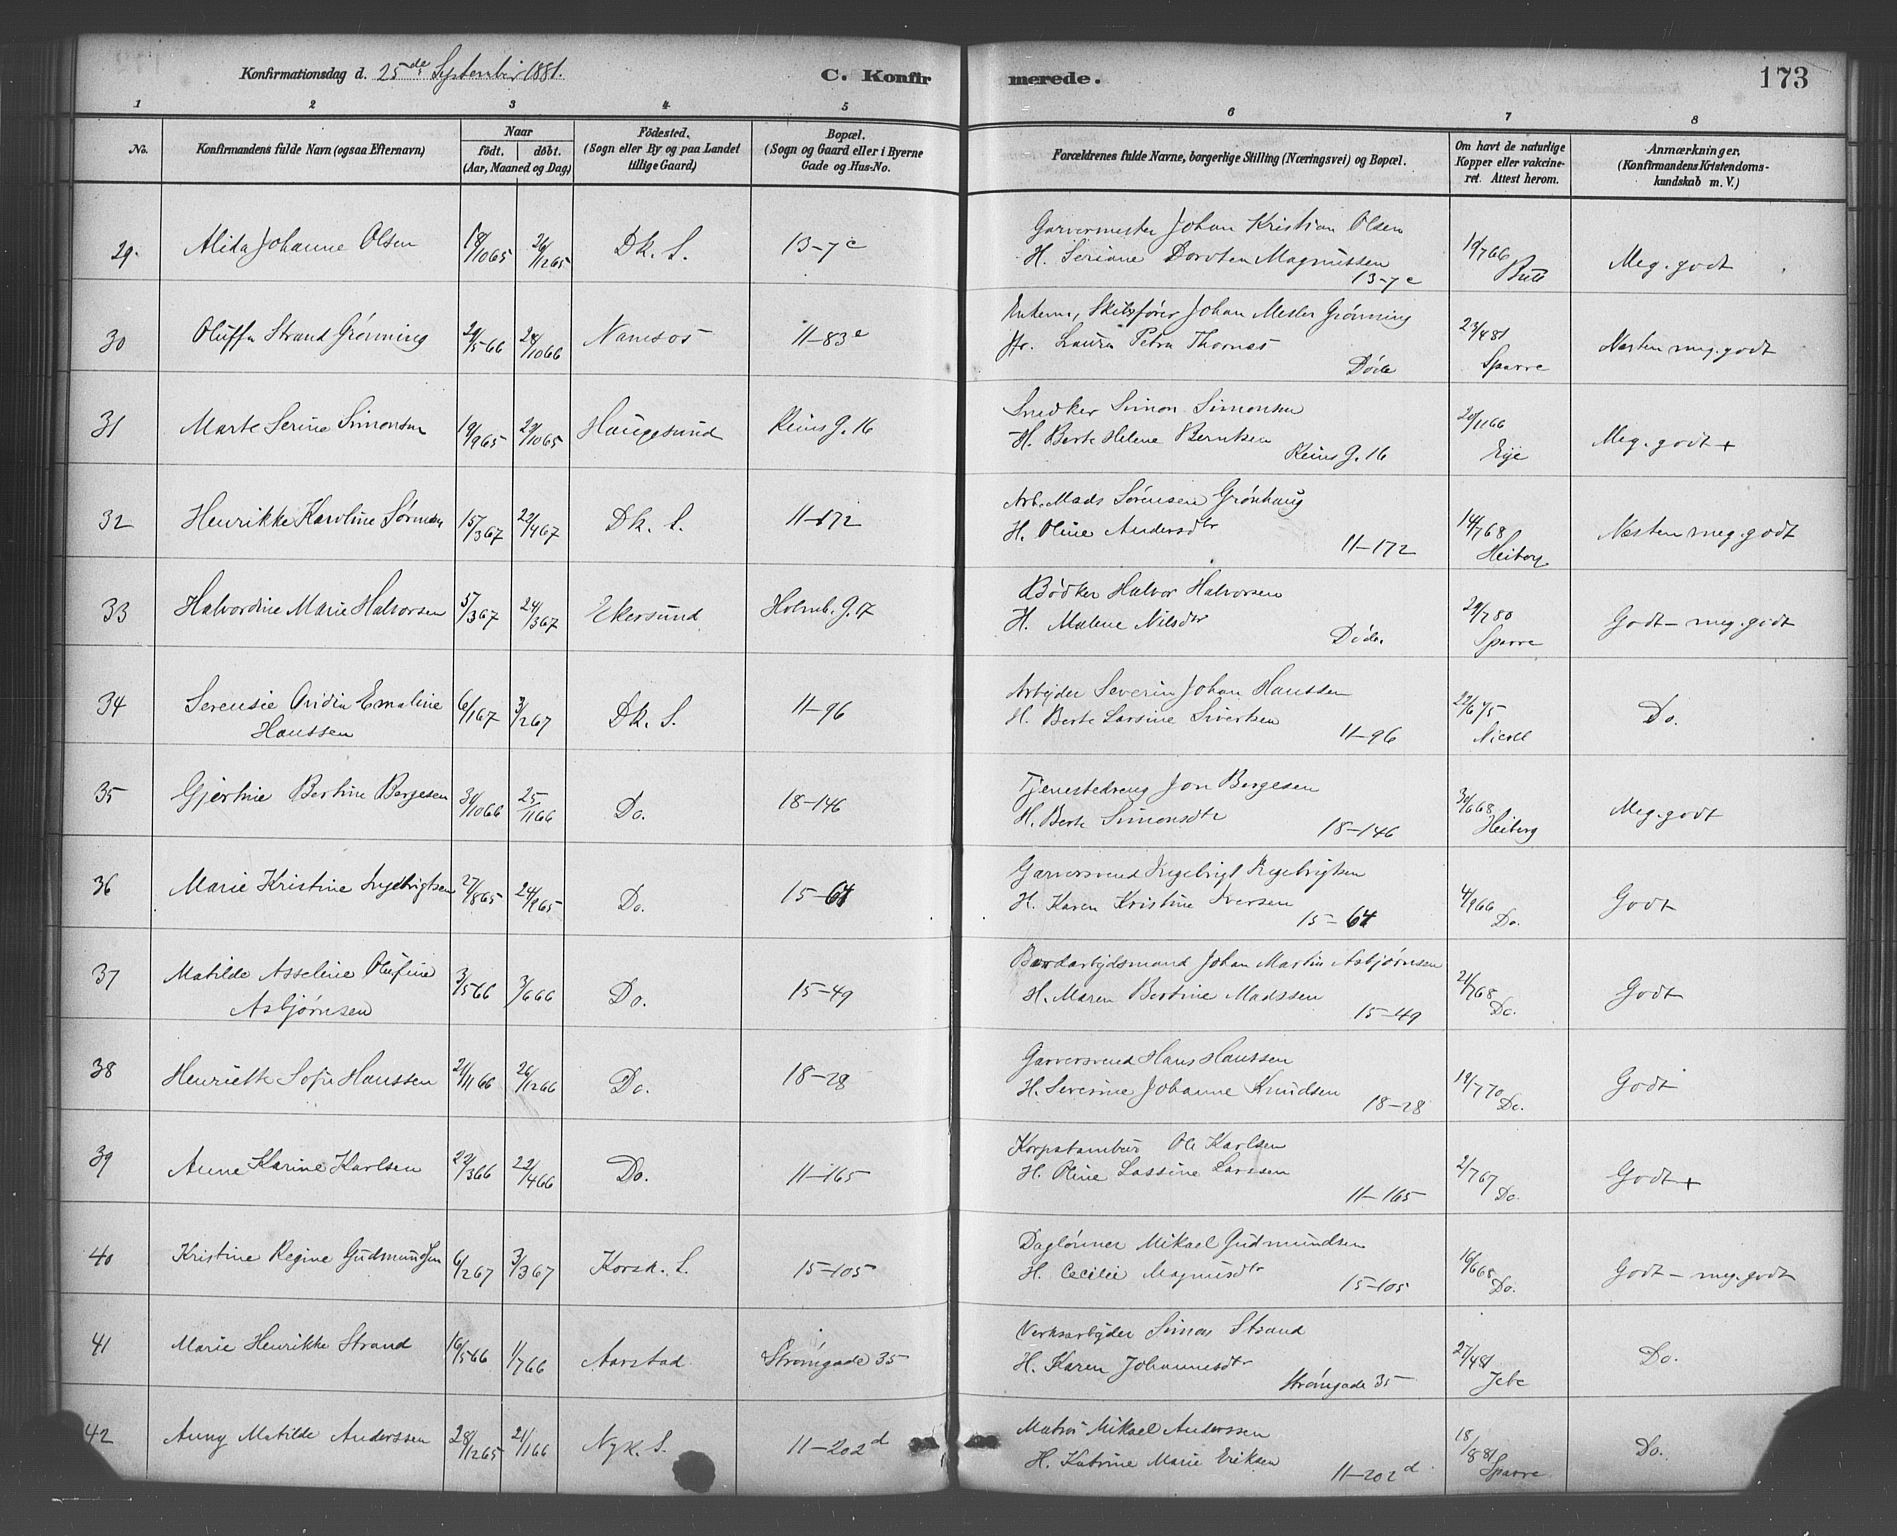 Konfirmationsdag d. 25de September 1881. C. Konfirmerede. 173
1 2 3 4 5 6 7 8
No. Konfirmandens fulde Navn (ogsaa Efternavn) Naar født. døbt. (Aar, Maaned og Dag) Fødested. (Sogn eller By og paa Landet tillige Gaard) Bopæl. (Sogn og Gaard eller i Byerne Gade og Hus-No. Forældrenes fulde Navne, borgerlige Stilling (Næringsvei) og Bopæl. Om havt de naturlige Kopper eller vakcineret. Attest herom. Anmærkninger, (Konfirmandens Kristendomskundskab m. V.)
29. Alida Johanne Olsen 18/10 65 26/12 65 Dk. S. 13-7c Garvermester Johan Kristian Olsen 19/7 66 Meg. godt
H. Seriane Dorotea Magnussen 13-7c
30 Oluffa Strand Grønning 29/5 66 28/10 66 Namsos 11-83e Johan Mesler Grønning 23/4 81 Sparre Næsten meg. godt
Laura Petra Thornæs Døde
31 Marte Serine Simonsen 19/9 65 29/10 65 Haugesund Reins G. 16 Snedker Simon Simonsen 20/11 66 Eye Meg. godt +
H. Berte Helene Berntsen Reins G. 16
32 Henrikke Karoline Sørensen 15/3 67 22/4 67 Dk. S. 11-172 Arb. Mads Sørensen Grønhaug 14/7 68 Heiberg Næsten meg. godt
H. Oline Andersdtr 11-172
33 Halvordine Marie Halvorsen 5/3 67 24/3 67 Ekersund Holmb. G. 17 Bødker Halvor Halvorsen 29/7 80 Sparre Godt - meg. godt
H. Malene Nilsdtr Døde.
34 Serensie Ovidia Emaline 6/1 67 3/2 67 Dk. S. 11-96 Arbejder Severin Johan Hanssen 22/6 75 Nicoll Do.
Hanssen H. Berte Larsine Sivertsen 11-96
35 Gjertine Bertine Børgesen 30/10 66 25/11 66 Do. 18-146 Tjenestedreng Jon Børgesen 30/6 68 Heiberg Meg. godt
H. Berte Simonsdtr 18-146
36 Marie Kristine Ingebrigtsen 27/8 65 24/9 65 Do. 15-64 Garversvend Ingebrigt Ingebrigtsen 4/9 66 Do. Godt
H. Karen Kristine Iversen 15-64
37 Matilde Asseline Olufine 3/5 66 3/6 66 Do. 15-49 Bordarbejdsmand Johan Martin Asbjørnsen 21/7 68 Do. Godt
Asbjørnsen H. Maren Bertine Madssen 15-49
38 Henriette Sofie Hanssen 21/11 66 26/12 66 Do. 18-28 Garversvend Hans Hanssen 19/7 70 Do. Godt
H. Severine Johanne Knudsen 18-28
39 Anne Karine Karlsen 22/3 66 22/4 66 Do. 11-165 Korpstambur Ole Karlsen 2/7 67 Do. Godt +
H. Oline Lassine Larssen 11-165
40 Kristine Regine Gudmundsen 6/2 67 3/3 67 Korsk. S. 15-105 Dagløner Mikael Gudmundsen 16/6 68 Do. Godt - meg. godt
H. Cecilie Magnusdtr 15-105
41 Marie Henrikke Strand 16/5 66 1/7 66 Aarstad Strømgade 35 Verksarbejder Simon Strand 27/4 81 Jebe Do.
H. Karen Johannesdtr Strømgade 35
42 Anny Matilde Anderssen 28/12 65 21/1 66 Nyk. S. 11-202d Matros Mikael Anderssen 18/8 81 Sparre Do.
H. Katrine Marie Eriksen 11-202d